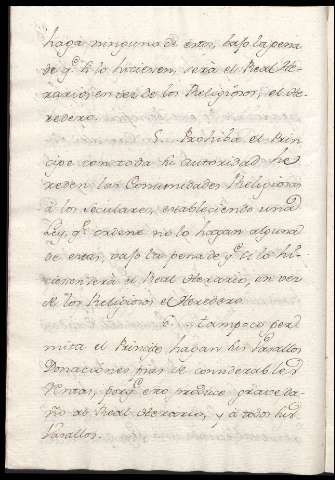 haga ninguna de estas, bajo la pena
de q.e si lo hicieren, será el Real He-
rario, en vez de los Religiosos, el He-
redero.
5. Prohiba el Prin-
cipe con toda su autoridad he-
reden las Comunidades Religiosas
á los seculares, estableciendo una
Ley, q.e ordene no lo hagan alguna
de estas, vajo la pena de q.e si lo hi-
cieren será el Real Herario, en vez
de los Religiosos el Heredero.
6. Tampoco per-
mita el Principe, hagan sus Vasallos
Donaciones pias de considerables
Rentas, porq.e esto produce grave da-
ño al Real Herario, y á todos sus
Vasallos.